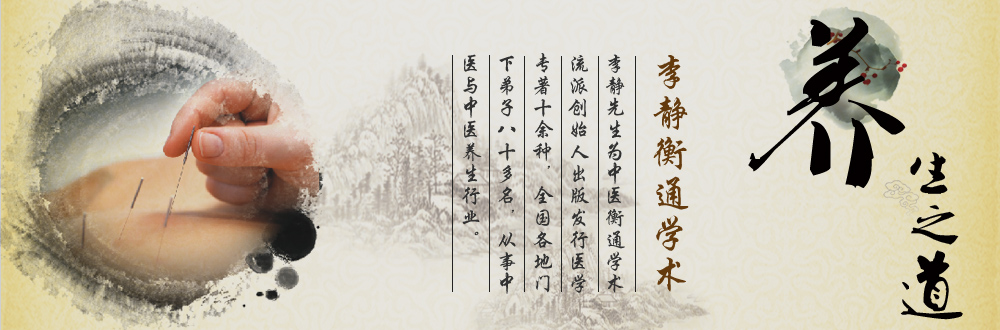 养
生之道
李静衡通学术
李静先生为中医衡通学术
流派创始人出版发行医学
专著十余种,全国各地门
下弟子八十多名,从事中
医与中医养生行业。